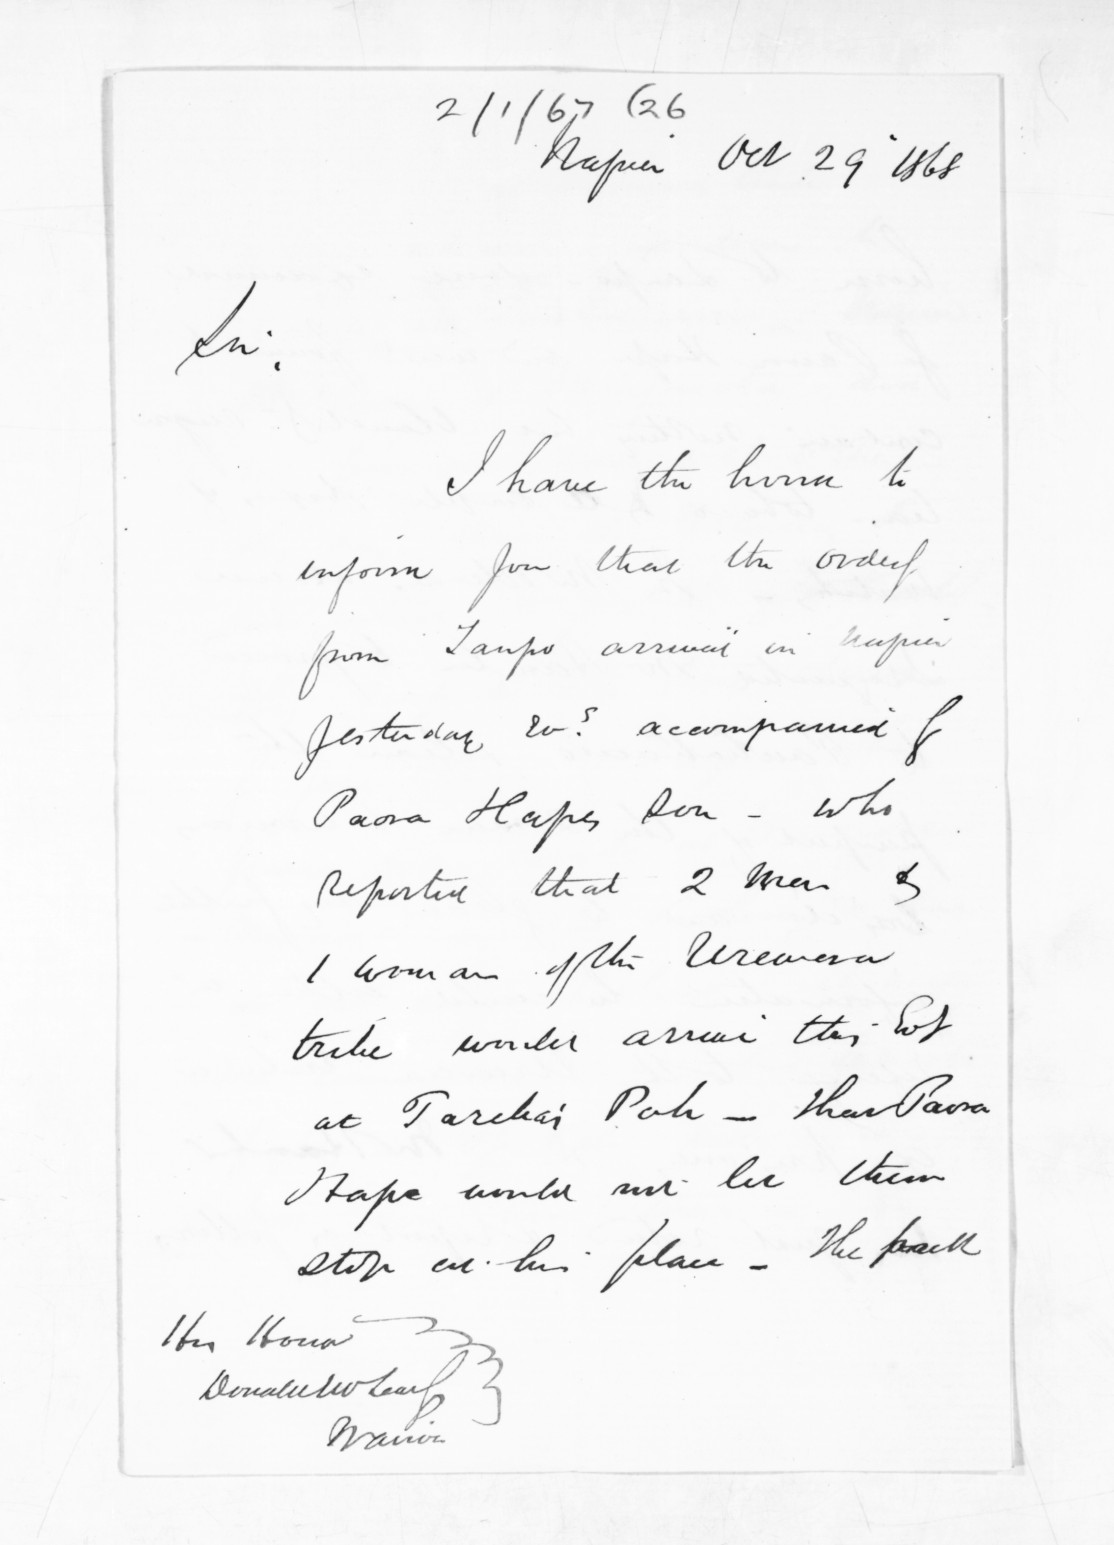 2/1/67 (26
Napier Oct 29" 1868
Sir,
I have the honor to
inform you that the orderly
from Taupo arrived in Napier
yesterday accompanied by
Paora Hapes son - who
reported that 2 men &
1 woman of the Urewera
tribe would arrive this
at Tareha's Pah - that Paora
Hape would not let them
stop at his place - The
His Honor
Donald McLean
Wairoa